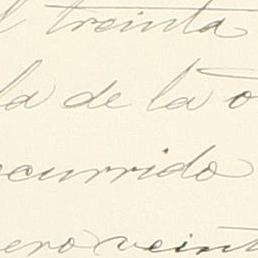 l treinta
la de la o
ocurrido
ero veint